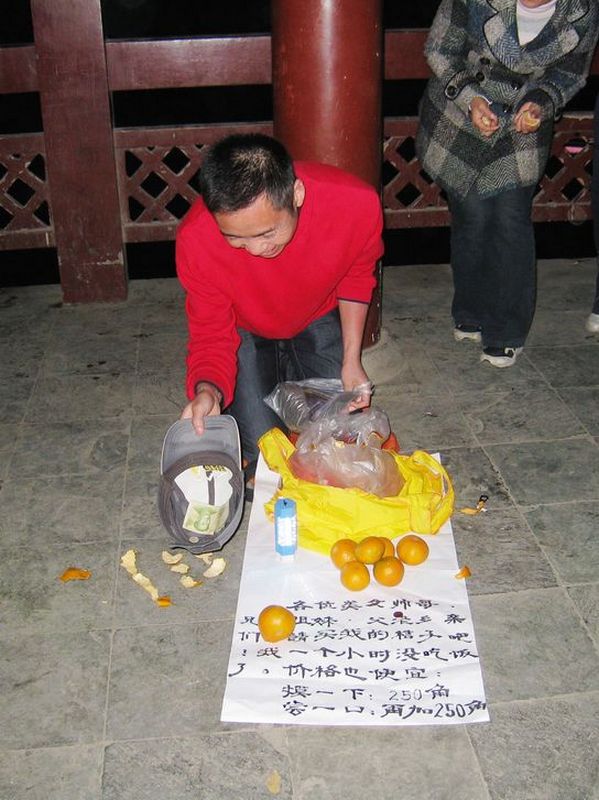 各位美女帅哥、
兄 姐妹、父老乡亲
们 请买我的桔子吧
！我一个小时没吃饭
了。价格也便宜：
摸一下：250角
尝一口：再加250角